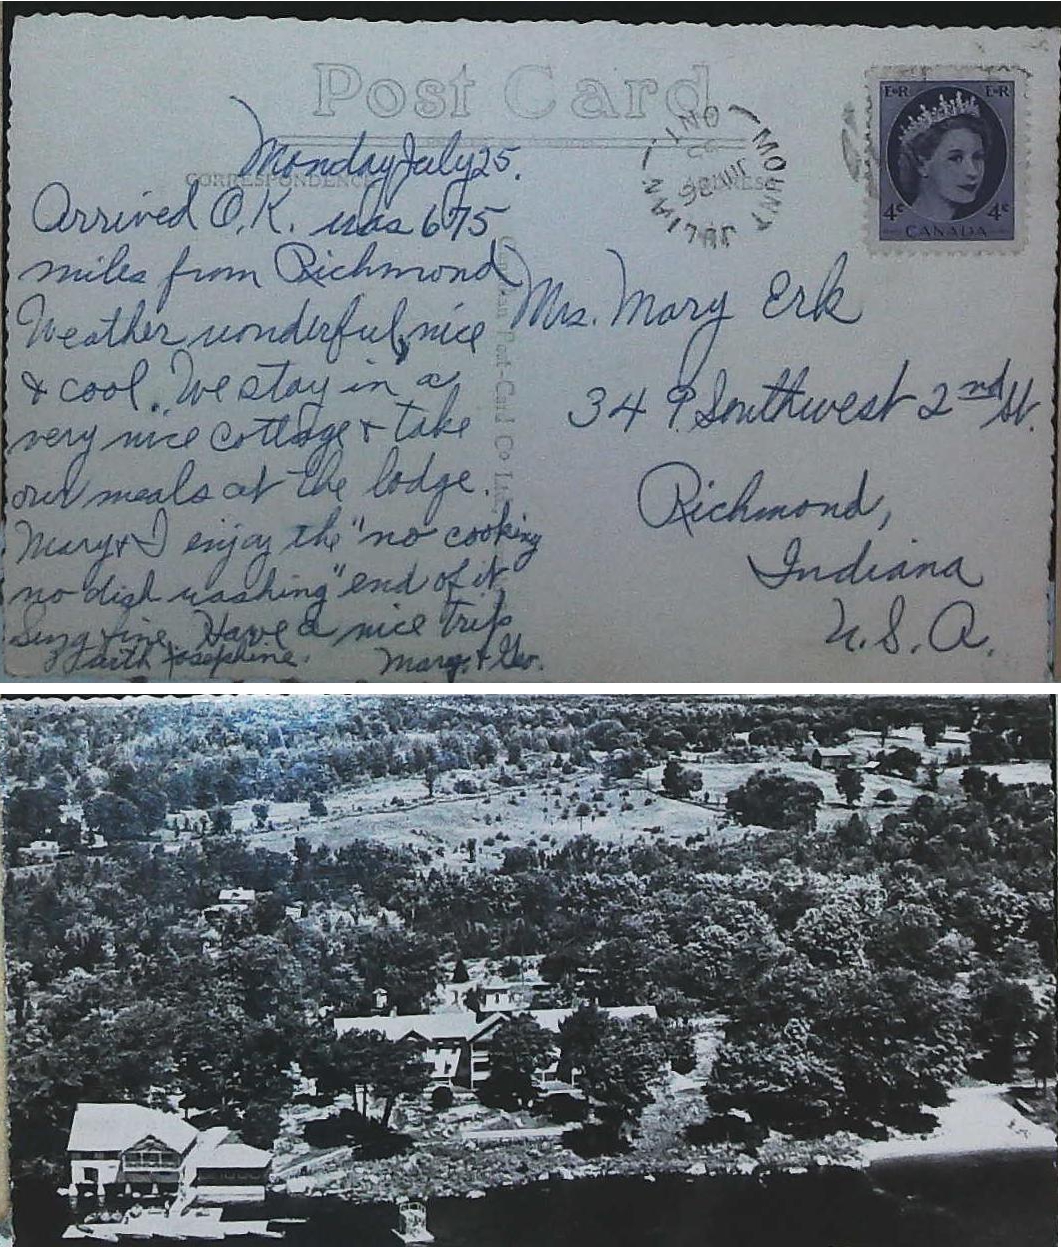 Post Card
CORRESPONDENCE
ADDRESS
Monday July 25.
Arrived O.K. was 675
miles from Richmond
Weather wonderful, nice
& cool. We stay in a
very nice cottage & take
our meals at the lodge.
Mary & I enjoy the "no cooking
no dish washing" end of it
Have a nice trip
Faith & Josephine.
Mary & Geo.
Post-Card Co Ltd.
MOUNT
JULIAN
ONT
E R
E R
4c
4c
CANADA
Mrs. Mary Erk
349 Southwest 2nd St.
Richmond,
Indiana
U.S.A.